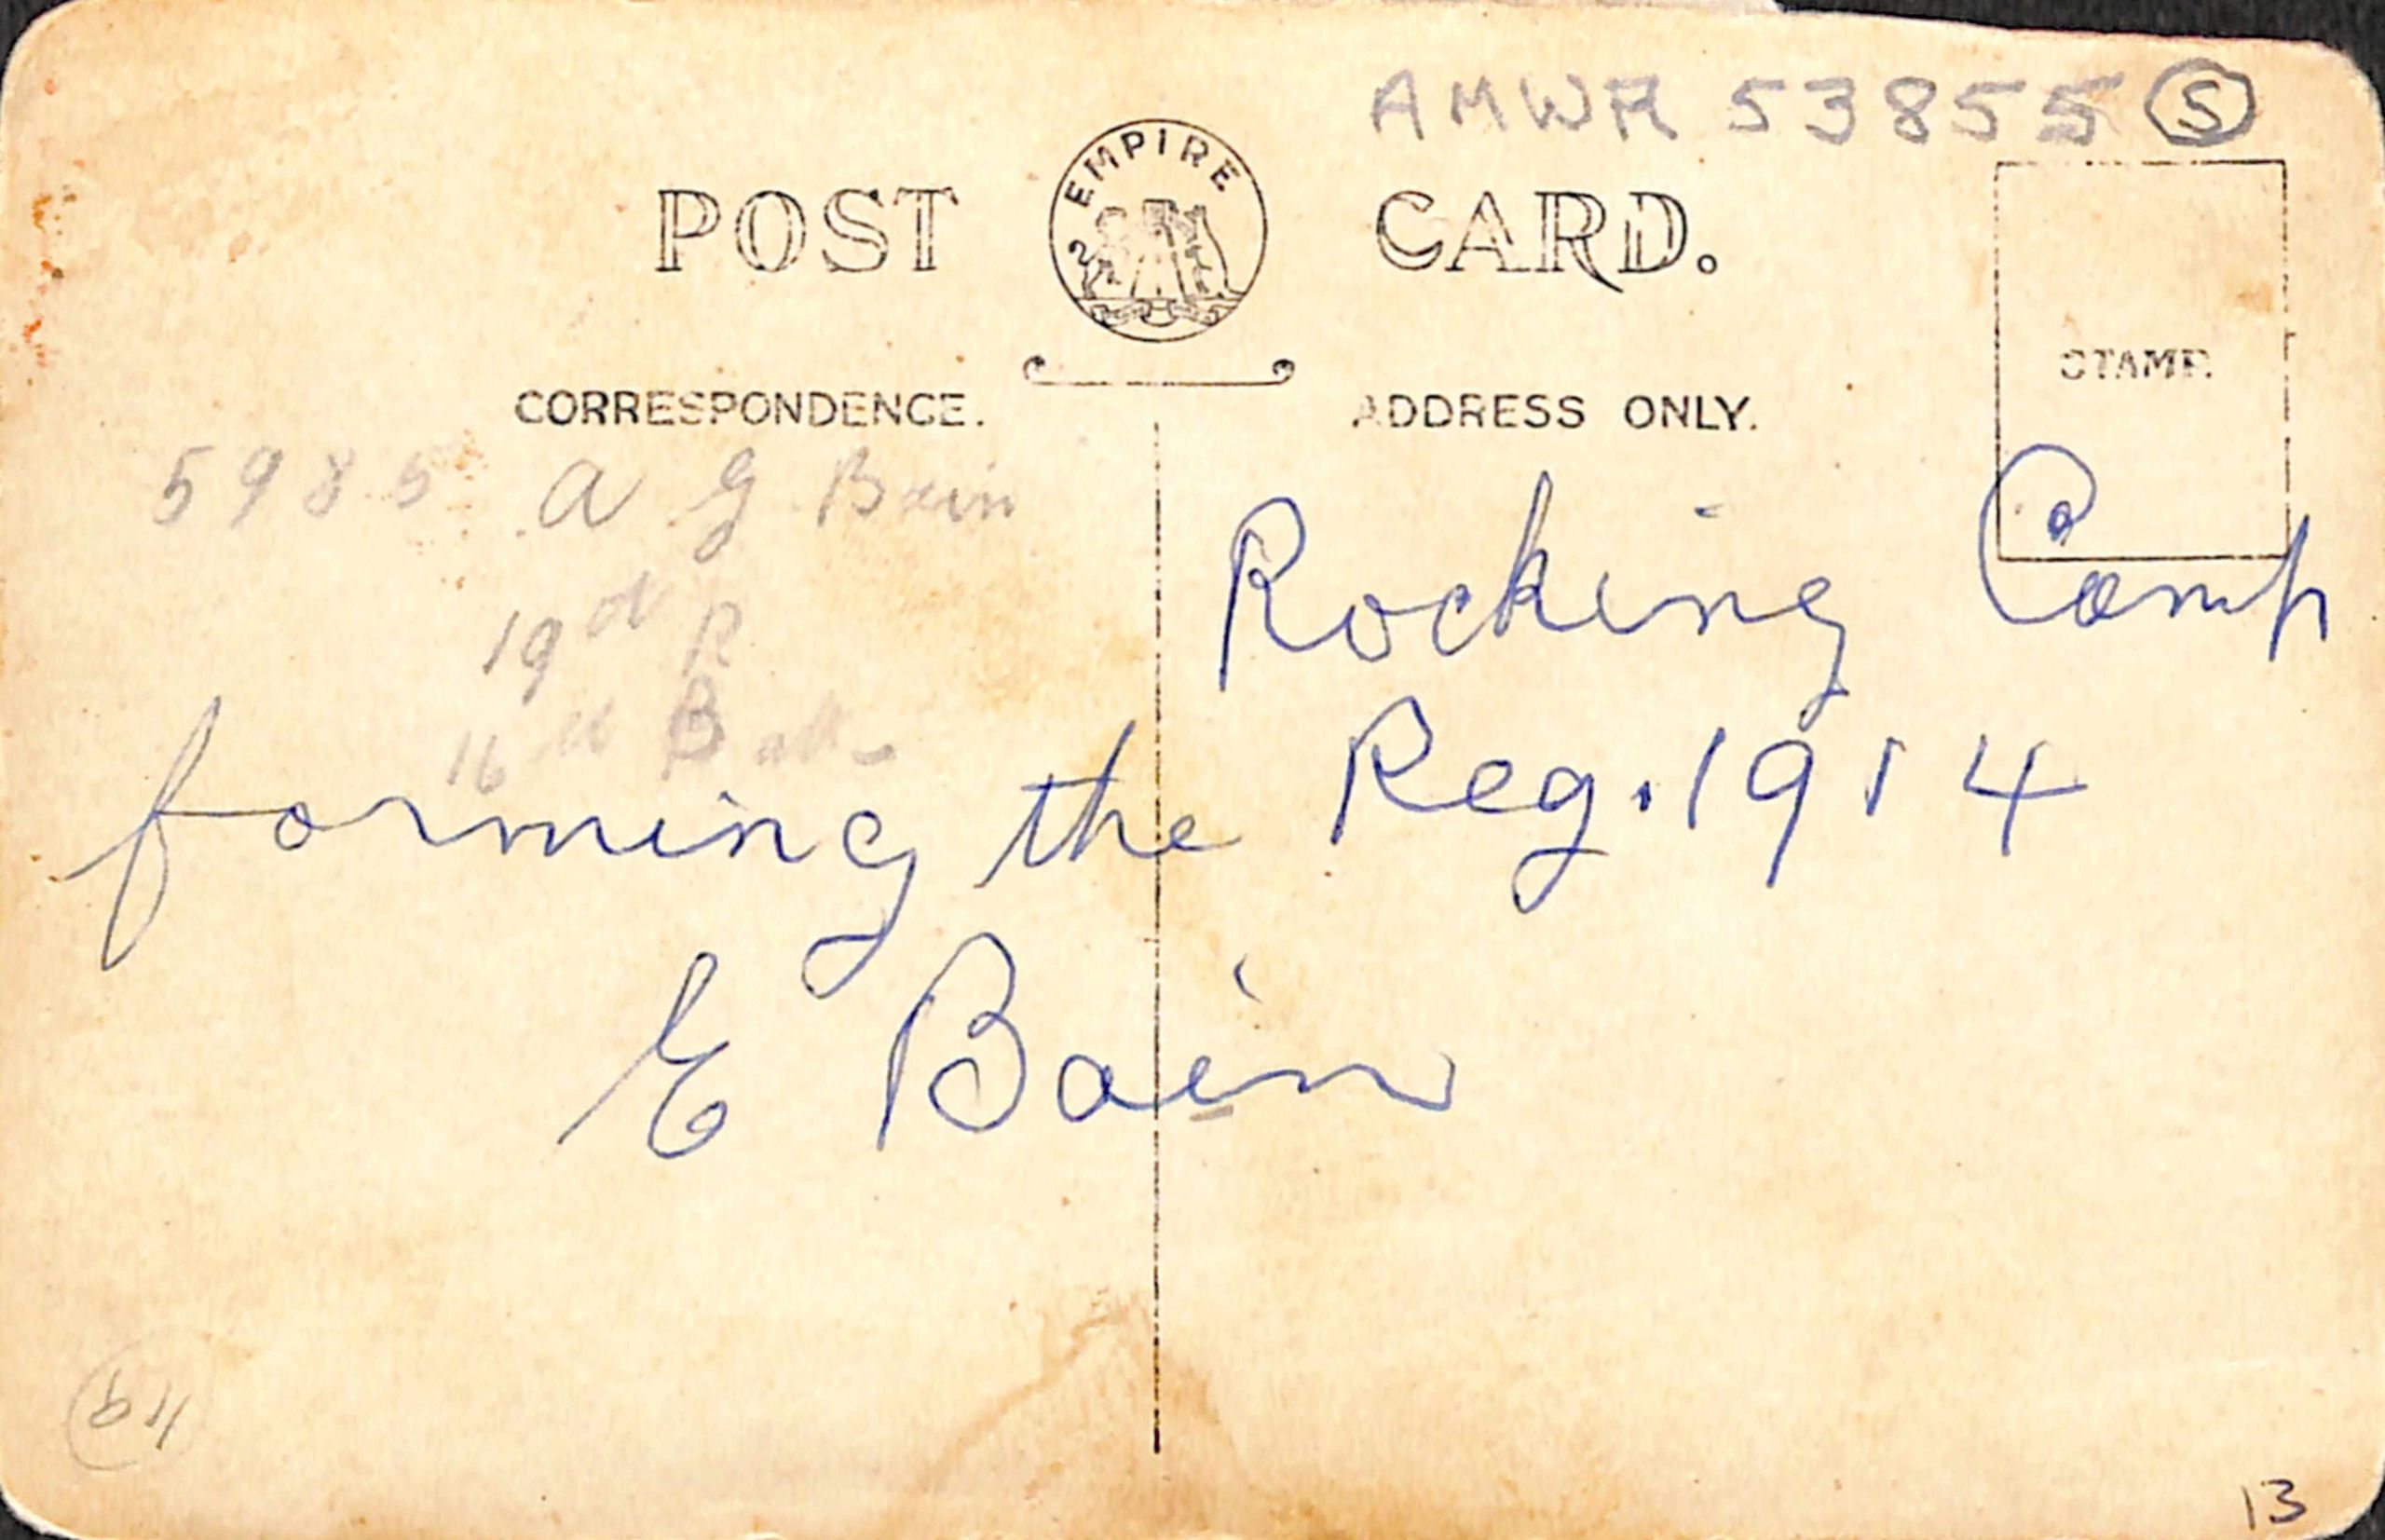 AMWA 53855 S
EMPIRE
POST CARD.
STAMP.
CORRESPONDENCE. ADDRESS ONLY.
5985 A G Bain
19th R
16th Batt
Rocking Camp
forming the Reg. 1914
E Bain
13